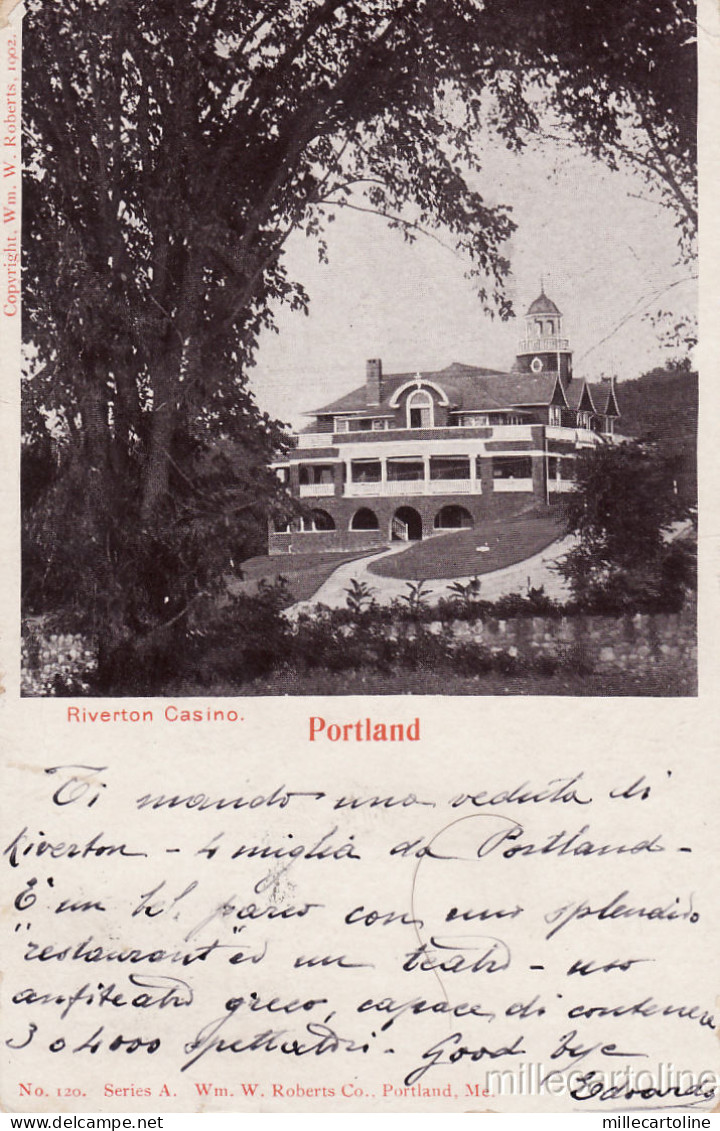 Copyright, Wm. W. Roberts, 1902.
Riverton Casino.
Portland
Ti mando una veduta di
Riverton - 4 miglia da Portland -
E' un bel parco con uno splendido
"restaurant" ed un teatro - uso
anfiteatro greco, capace di contenere
3 o 4000 spettatori - Good bye
Edoardo
No. 120. Series A. Wm. W. Roberts Co., Portland, Me.
millecartoline
millecartoline
millecartoline